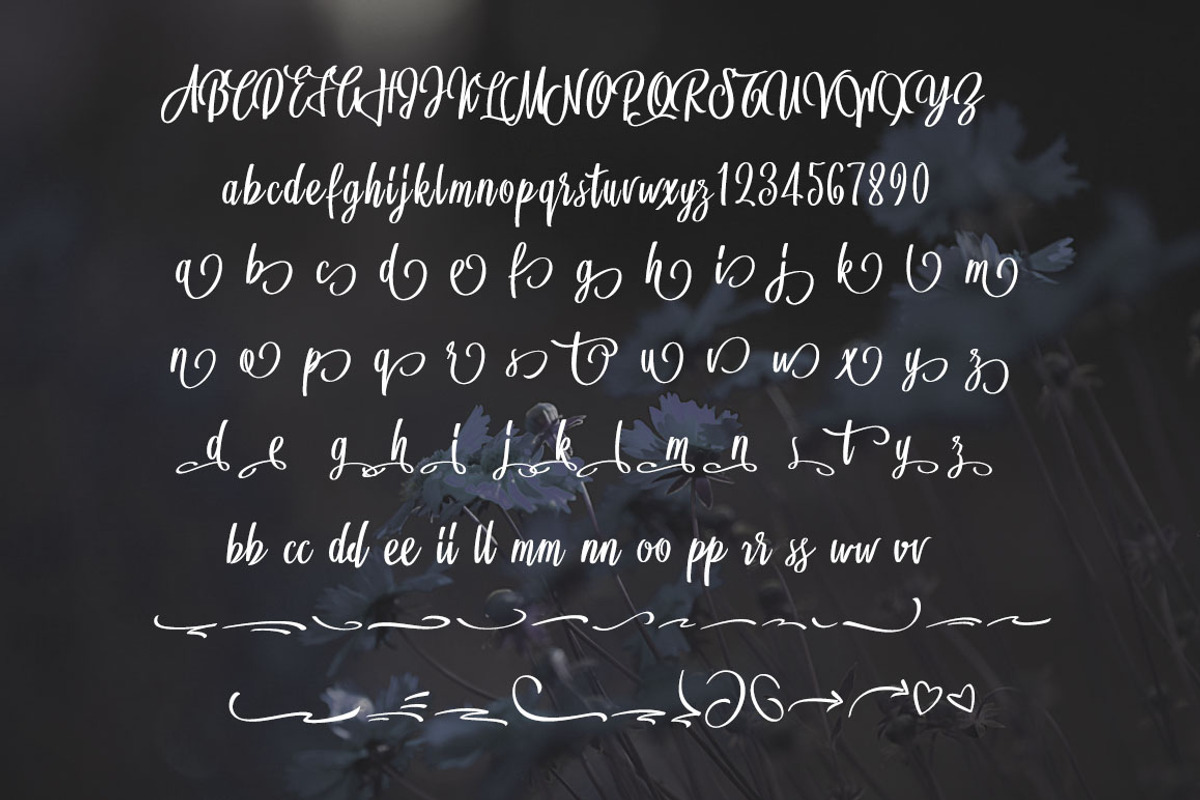 ABCDEFGHIJKLMNOPQRSTUVWXYZ
abcdefghijklmnopqrstuvwxyz1234567890
a b c d e f g h i j k l m
n o p q r s t u v w x y z
d e g h i j k l m n s t y z
bb cc dd ee ii ll mm nn oo pp rr ss ww vv